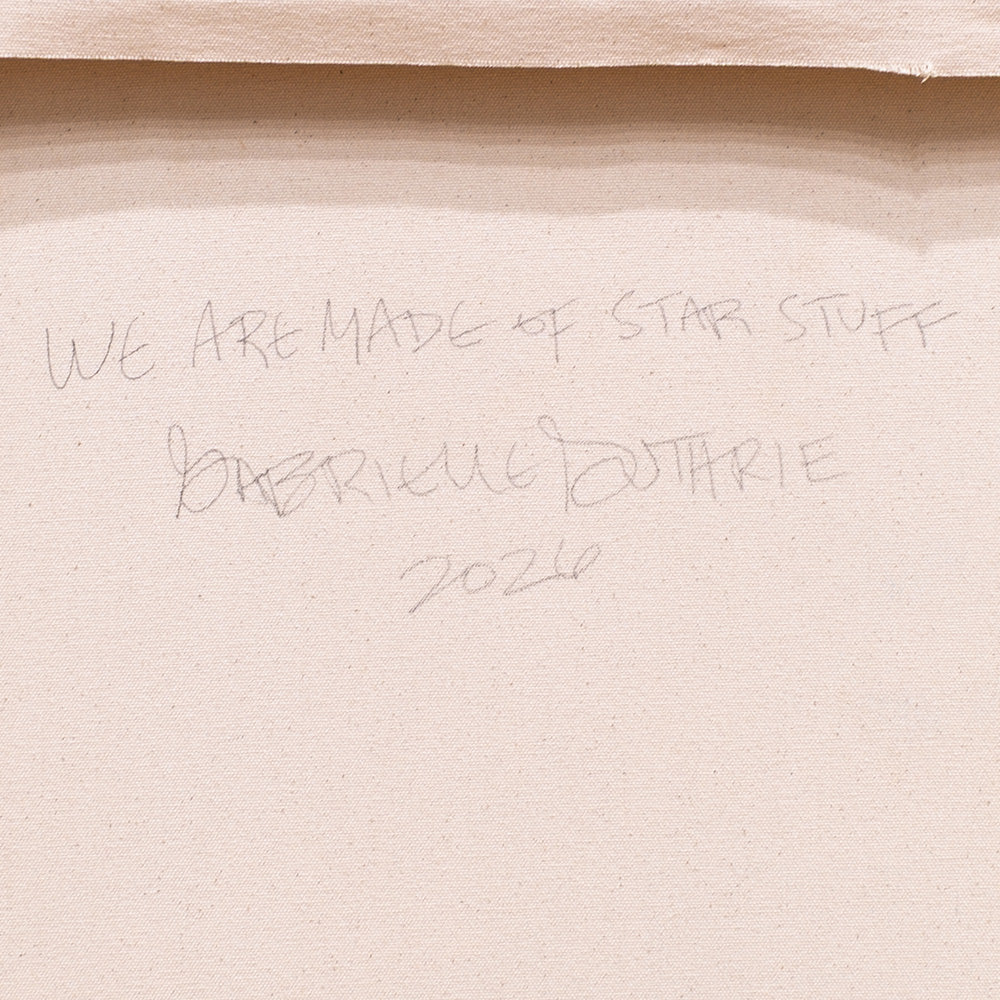 WE ARE MADE OF STAR STUFF
GABRIELLE GUTHRIE
2026